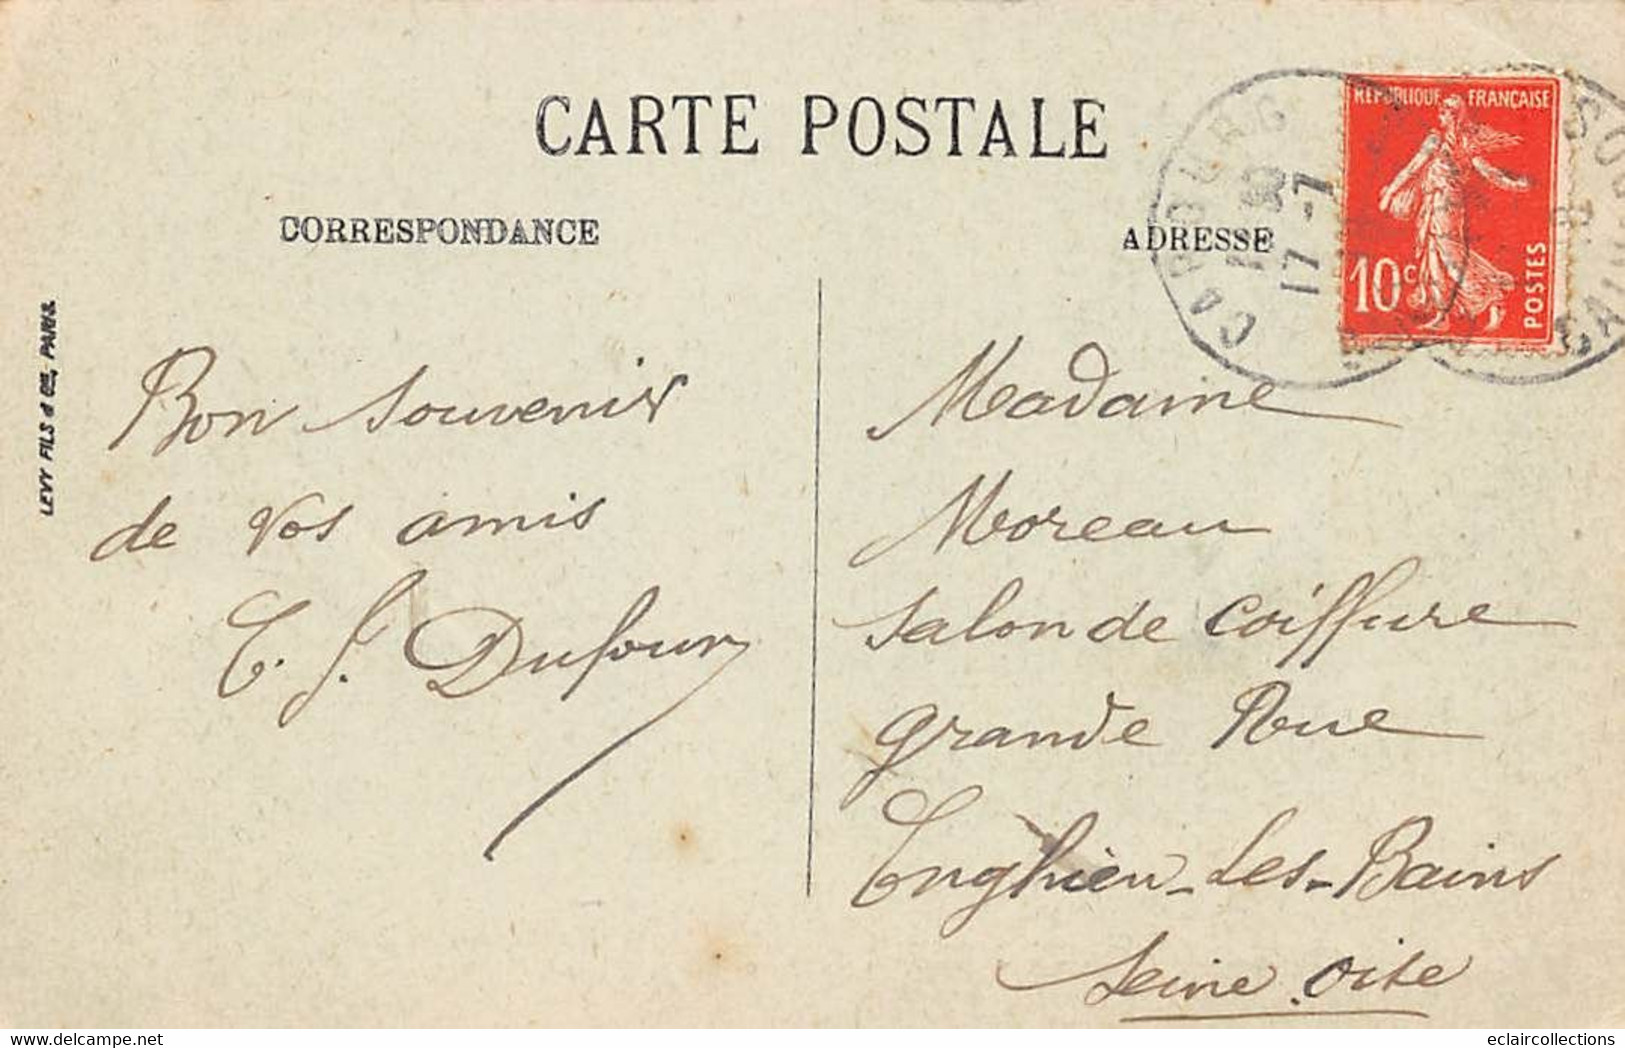 CARTE POSTALE
CORRESPONDANCE
ADRESSE
RÉPUBLIQUE FRANÇAISE
10c
POSTES
CABOURG
17-7
LEVY FILS & Cie, PARIS.
Bon souvenir
de vos amis
E. J. Dufour
Madame
Moreau
Salon de Coiffure
grande Rue
Enghien-Les-Bains
Seine. Oise
delcampe.net
eclaircollections